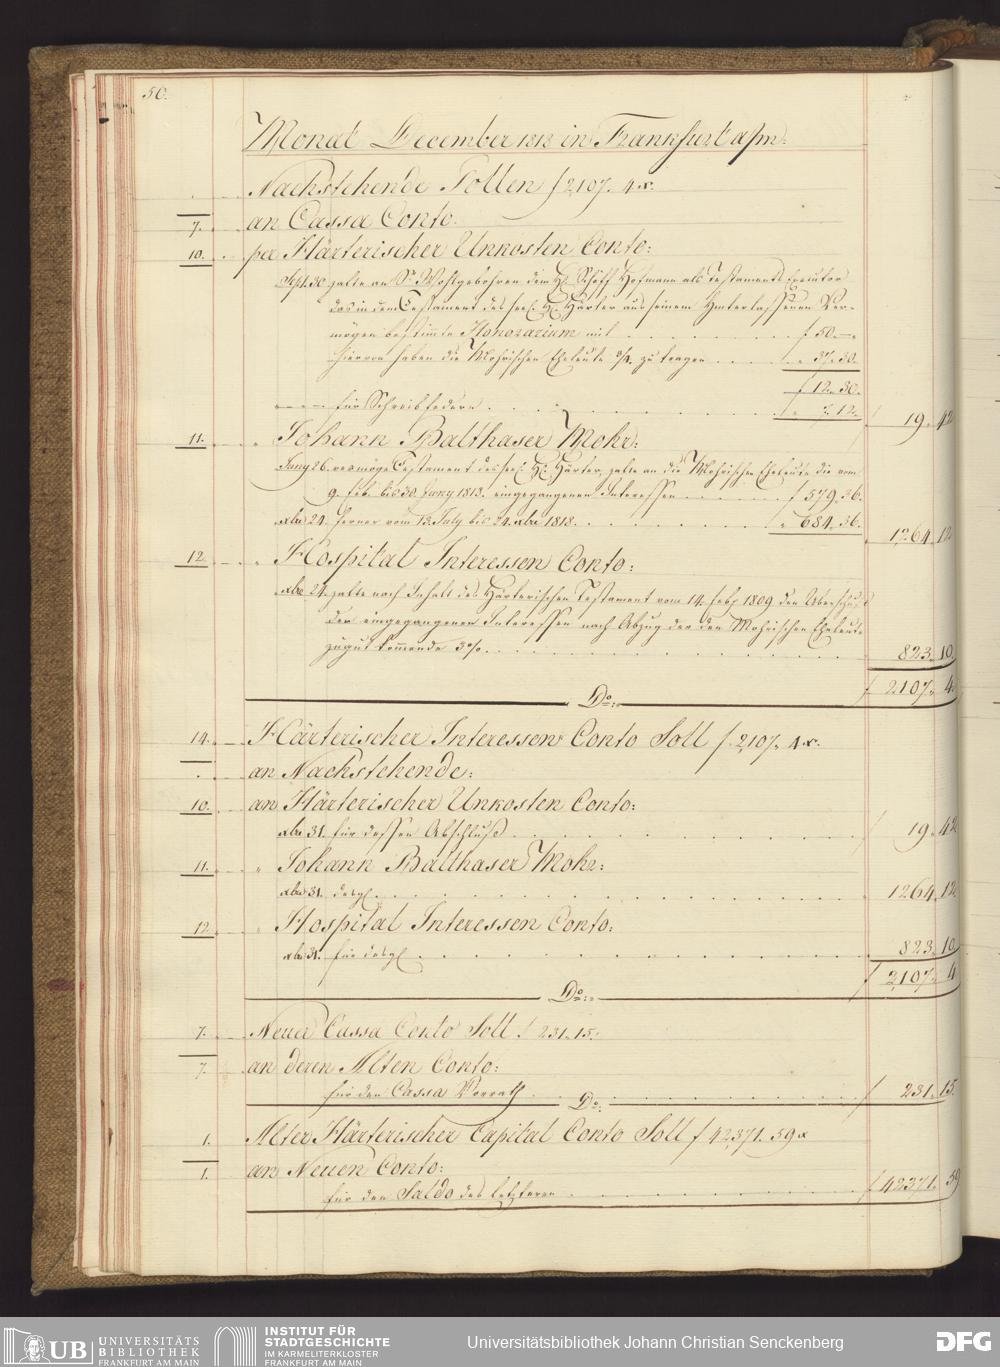 50.
Monat December 1813 in Frankfurt a/m:
Nachstehende Sollen f 2107. 4 x.
7. an Cassa Conto
10. per Härterischer Unkosten Conto:
Sept. 30. zalte an Sr. Wohlgebohren dem H. Schöff Hofmann als Testaments Executor
das in dem Testament des seel. H. Härter aus seinem Hinterlassenen Ver-
mögen bestimte Honorarium mit f 50.—.
hievon haben die Mohrischen Eheleute zu tragen 37. 30.
f 12. 30.
— für Schreibfedern 7. 12. f 19. 42
11. " Johann Balthaser Mohr:
Juny 26. vermöge Testament des seel. H. Härter, zalte an die Mohrischen Eheleute die vom
9. Feb. bis 30. Juny 1813. eingegangenen Interessen f 579. 36.
xbr 24. ferner vom 13. July bis 24. xbr 1813. " 684. 36. 1264. 12
12. " Hospital Interessen Conto:
xbr 24. zalte nach Inhalt des Härterischen Testament vom 14. Feb. 1809 den Überschuß
der eingegangenen Interessen nach Abzug der den Mohrischen Eheleute
zugut komende 3% 823. 10
f 2107. 4
Do:
14. Härterischer Interessen Conto Soll f 2107. 4 x.
an Nachstehende:
10. an Härterischer Unkosten Conto:
xbr 31. für dessen Abschluß f 19. 42
11. " Johann Balthaser Mohr:
xbr 31. desgl. 1264. 12
12. " Hospital Interessen Conto:
xbr 31. für desgl. 823. 10
f 2107. 4
Do:
7. Neuer Cassa Conto Soll f 231. 15.
7. an deren Alten Conto:
für den Cassa Vorrath f 231. 15.
Do:
1. Alter Härterischer Capital Conto Soll f 42371. 59 x
1. an Neuen Conto:
für den Saldo des letzteren f 42371. 59
UB UNIVERSITÄTS BIBLIOTHEK FRANKFURT AM MAIN
INSTITUT FÜR STADTGESCHICHTE IM KARMELITERKLOSTER FRANKFURT AM MAIN
Universitätsbibliothek Johann Christian Senckenberg
DFG